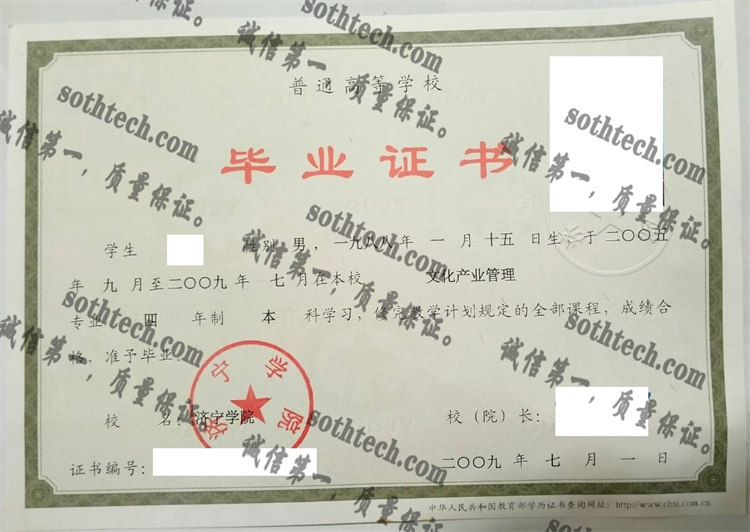 普通高等学校
毕业证书
学生 性别 男，一九八八年 一 月 十五 日生，于 二〇〇五
年 九 月至二〇〇九 年 七 月在本校 文化产业管理
专业 四 年制 本 科学习，修完教学计划规定的全部课程，成绩合
格，准予毕业。
济宁学院
校 名：济宁学院 校（院）长：
证书编号： 二〇〇九 年 七 月 一 日
中华人民共和国教育部学历证书查询网址：http://www.chsi.com.cn
sothtech.com
诚信第一，质量保证。
sothtech.com
诚信第一，质量保证。
sothtech.com
诚信第一，质量保证。
sothtech.com
诚信第一，质量保证。
sothtech.com
诚信第一，质量保证。
sothtech.com
诚信第一，质量保证。
sothtech.com
诚信第一，质量保证。